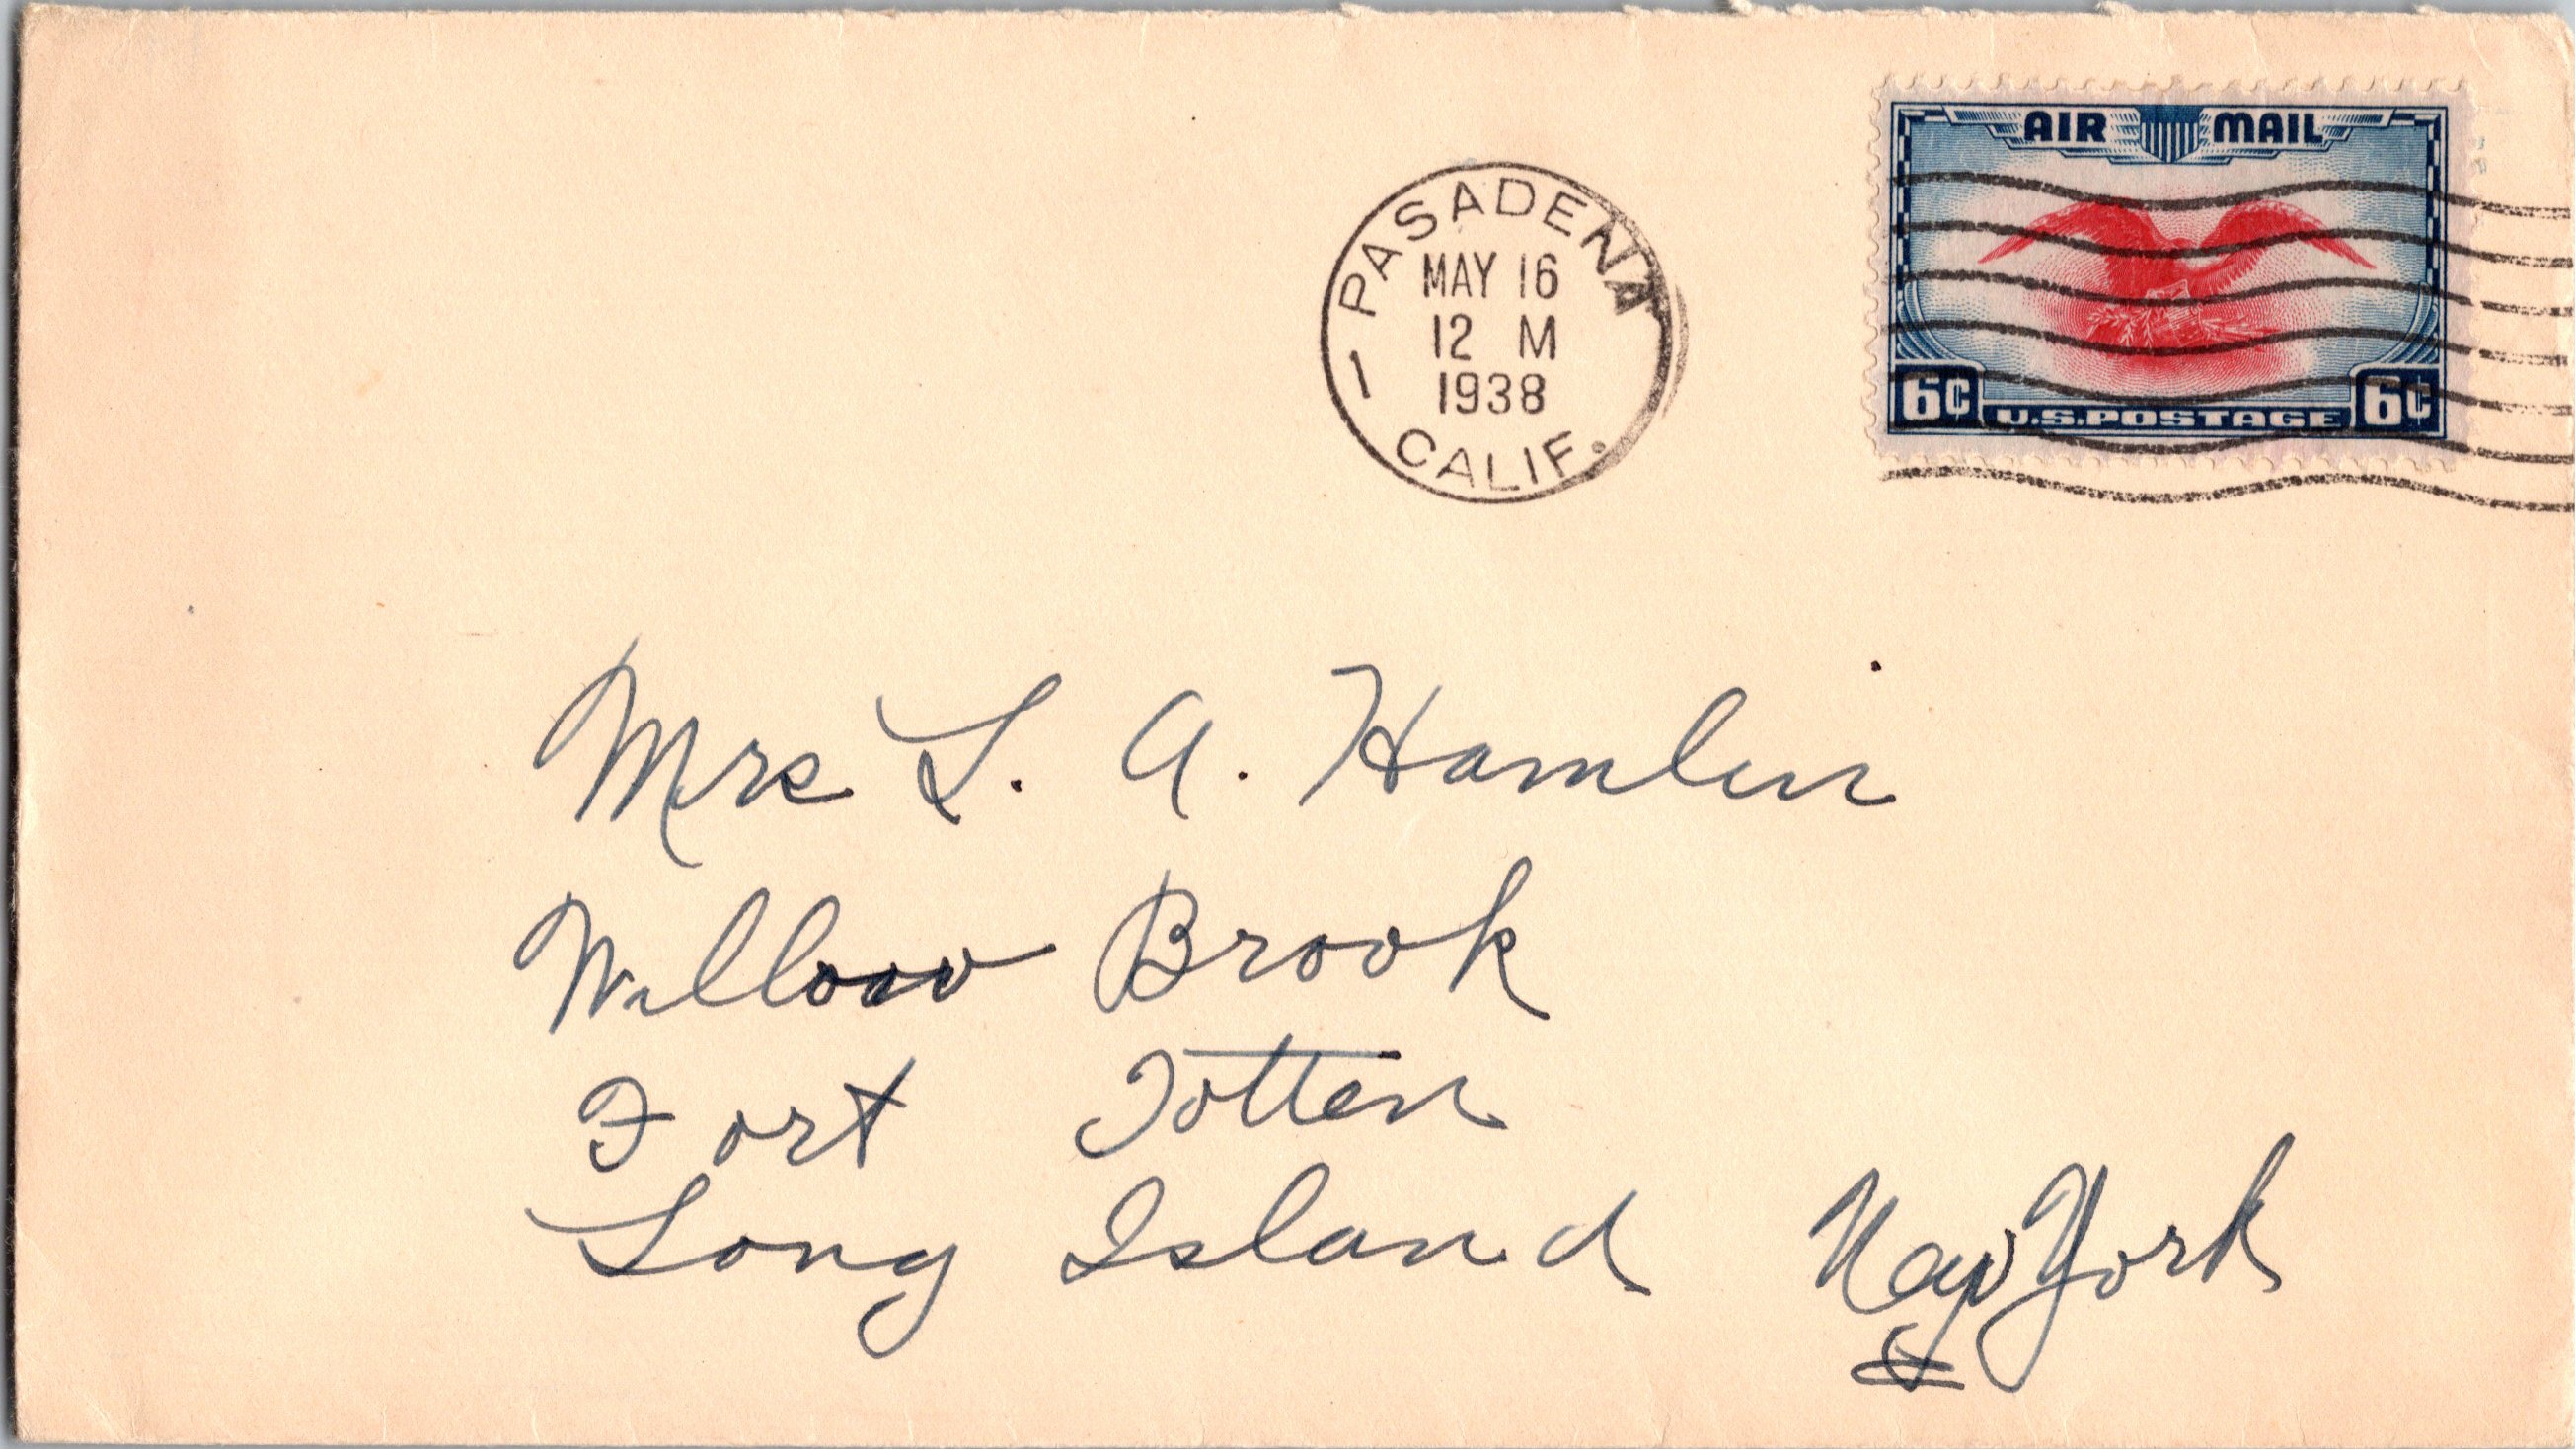 AIR MAIL
PASADENA
MAY 16
12 M
1938
CALIF.
6¢ U.S.POSTAGE 6¢
Mrs L. A. Hamlin
Willow Brook
Fort Totten
Long Island New York